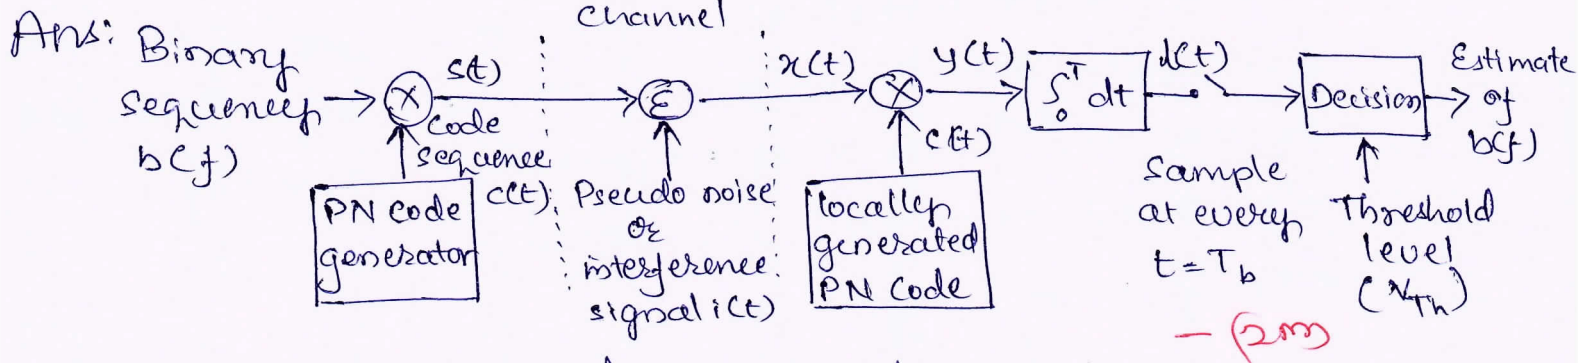 Ans:
Binary
sequence
b(t)
X
s(t)
code
sequence
c(t)
PN code
generator
channel
Σ
Pseudo noise
or
interference
signal i(t)
x(t)
X
c(t)
locally
generated
PN code
y(t)
∫₀ᵀ dt
d(t)
Sample
at every
t = T_b
Decision
Threshold
level
(V_Th)
Estimate
of
b(t)
— (2m)